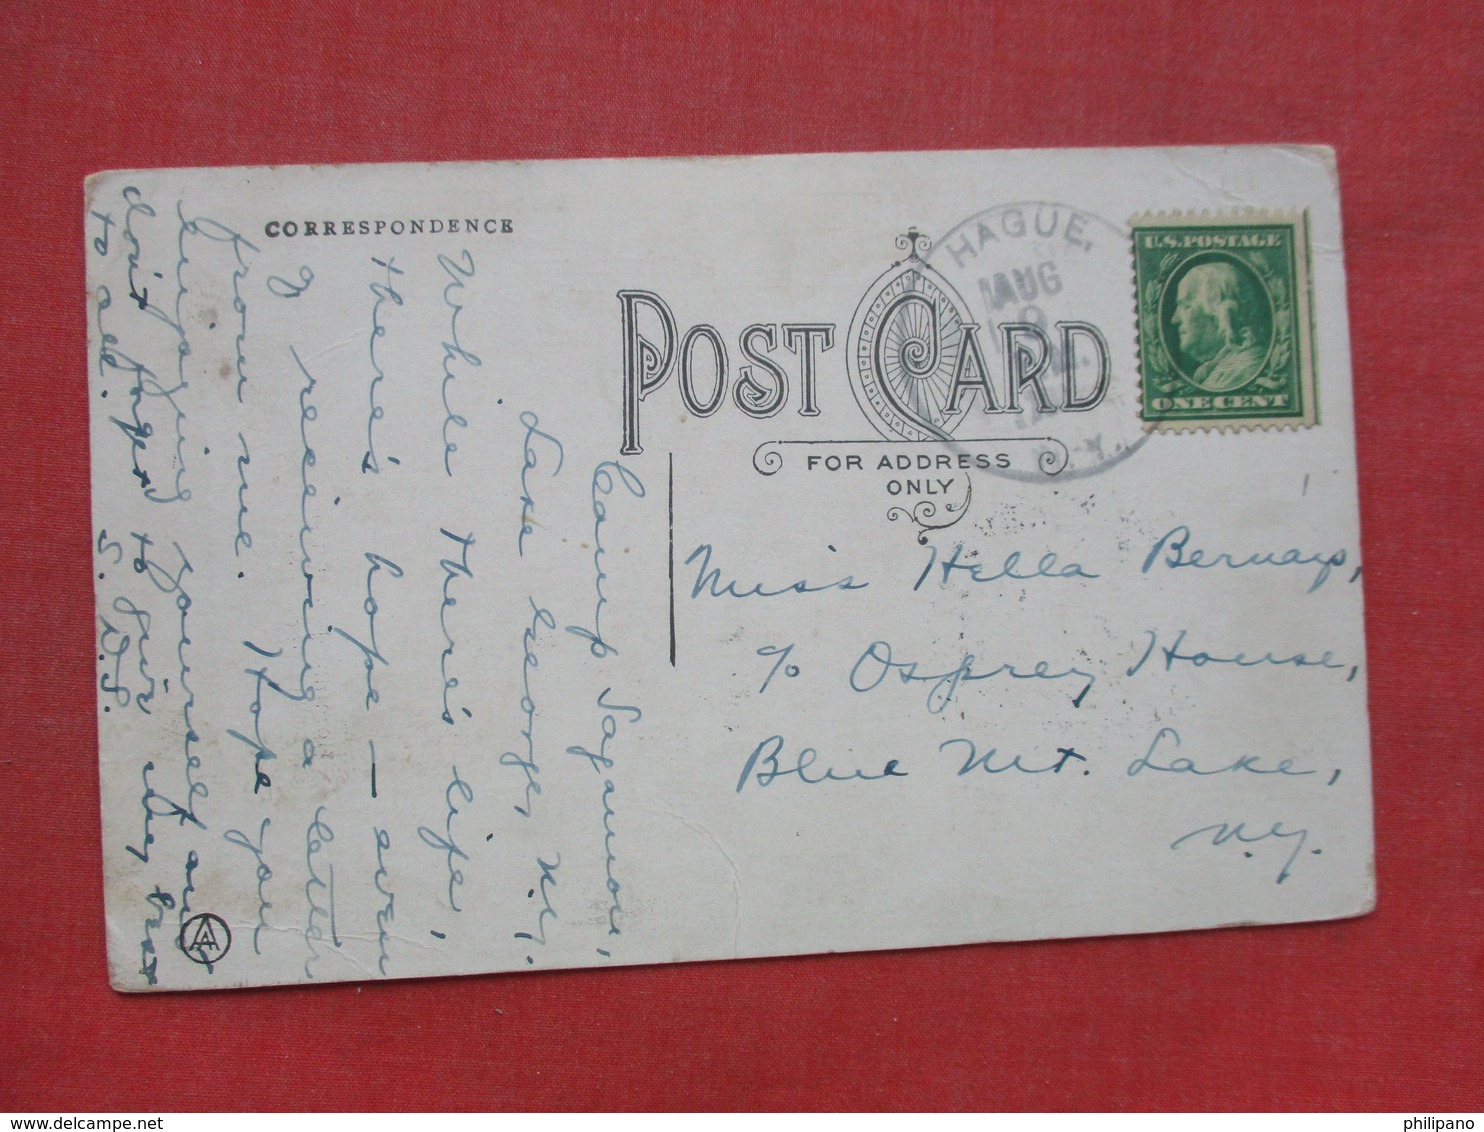 CORRESPONDENCE
Camp Sagamore,
Lake George, N.Y.
While there's life,
there's hope — even
of receiving a letter
from me. Hope you
enjoying yourself and
don't forget to give my best
to all. S. D. S.
POST CARD
FOR ADDRESS
ONLY
HAGUE,
AUG
9
N.Y.
U.S. POSTAGE
ONE CENT
Miss Hella Bernays,
c/o Osprey House,
Blue Mt. Lake,
N.Y.
www.delcampe.net
philipano